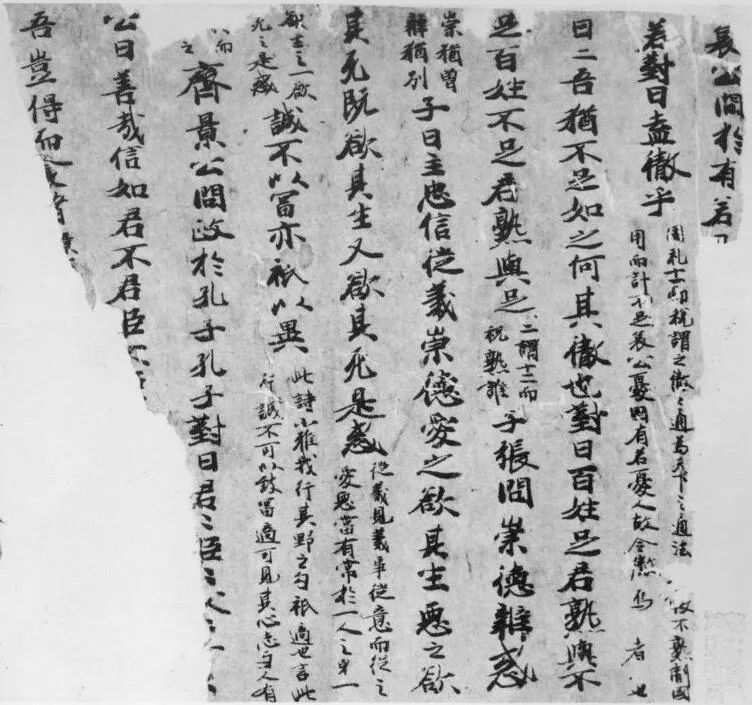 哀公問於有若
若對曰盍徹乎 周礼十一而税謂之徹〻通為天下之通法 用而計不足哀公憂國有若憂人故令徹焉 者也
曰二吾猶不足如之何其徹也對曰百姓足君熟與不
足百姓不足君熟與足 二謂十二而税熟誰 子張問崇德辯惑
崇猶曽 辯猶別 子曰主忠信從義崇德愛之欲其生惡之欲
其死既欲其生又欲其死是惑 從義見義事從意而從之 愛惡當有常於一人之身一
欲生之一欲死之是惑 誠不以冨亦祇以異 此詩小雅我行其野之句祇適也言此 行誠不可以致富適可見其心志与人有
齊景公問政於孔子孔子對曰君〻臣〻父〻
公曰善哉信如君不君臣
吾豈得而食諸